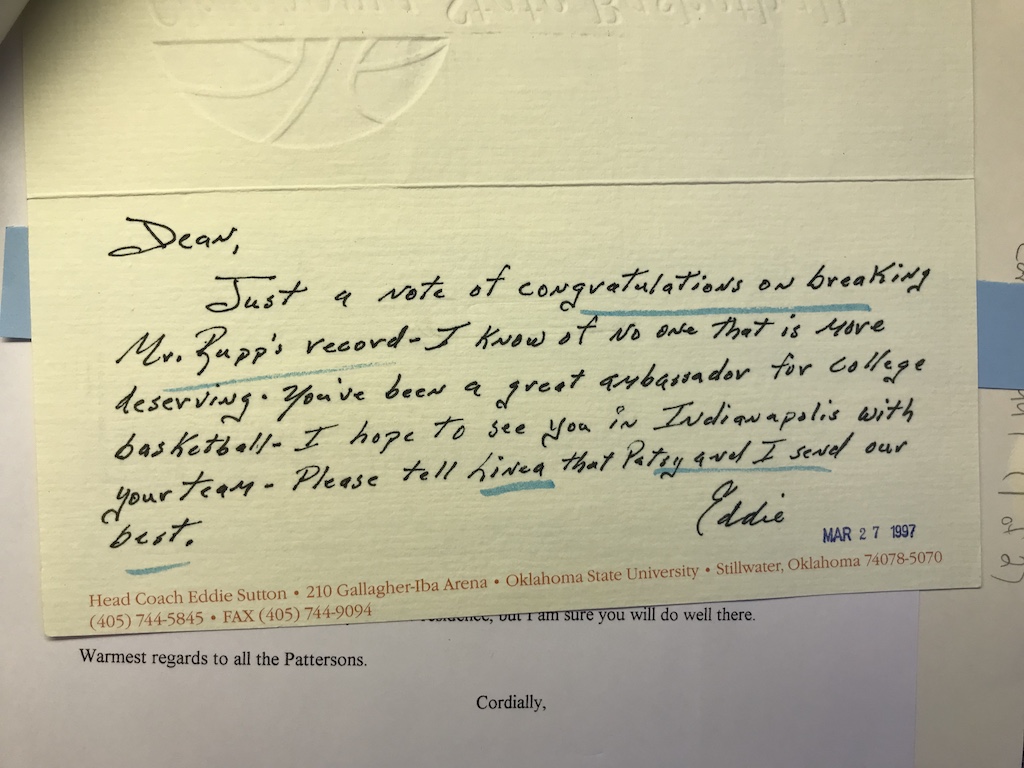 Dean,
Just a note of congratulations on breaking
Mr. Rupp's record - I know of no one that is more
deserving. You've been a great ambassador for college
basketball - I hope to see you in Indianapolis with
your team - Please tell Linea that Patsy and I send our
best.
Eddie
MAR 27 1997
Head Coach Eddie Sutton • 210 Gallagher-Iba Arena • Oklahoma State University • Stillwater, Oklahoma 74078-5070
(405) 744-5845 • FAX (405) 744-9094
but I am sure you will do well there.
Warmest regards to all the Pattersons.
Cordially,
(1 of 2)